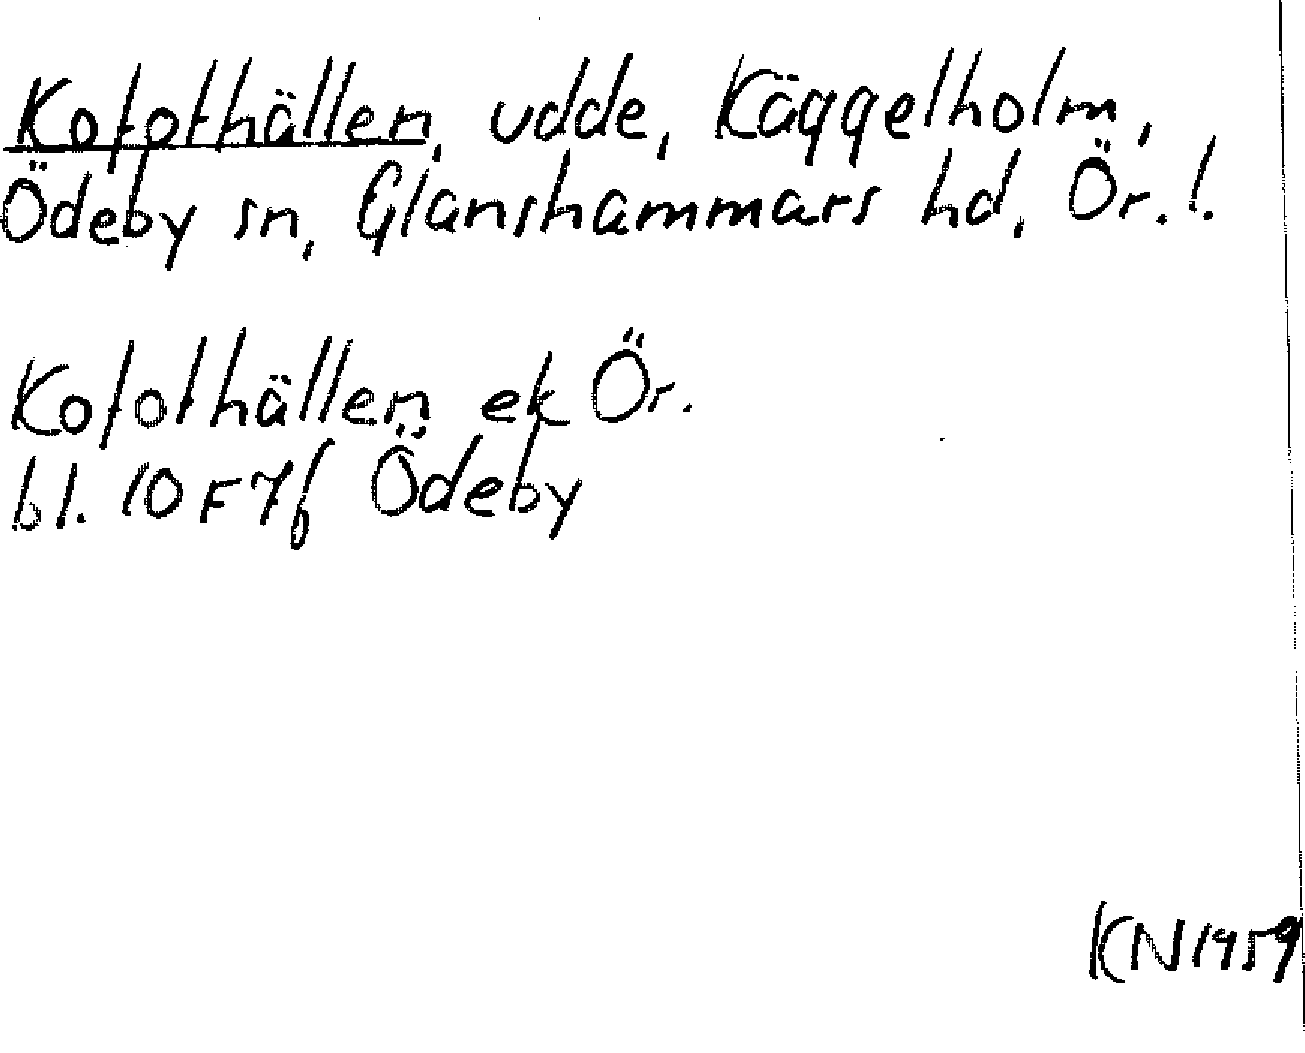 Kofothällen, udde, Käggelholm,
Ödeby sn, Glanshammars hd, Ör. !.
Kofothällen ek Ör.
bl. 10F7f Ödeby
KN 1959